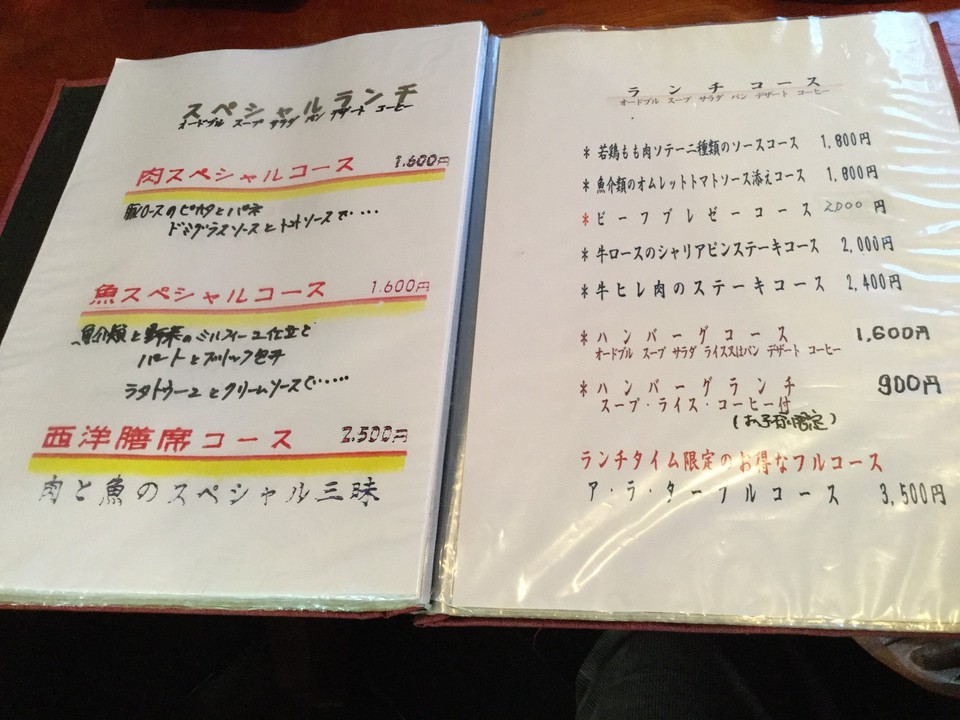 スペシャルランチ
オードブル スープ サラダ パン デザート コーヒー
肉スペシャルコース 1.600円
豚ロースのピカタとパネ
ドミグラスソースとトマトソースで・・・・
魚スペシャルコース 1.600円
魚介類と野菜のミルフィーユ仕立と
パートとブリック包み
ラタトゥーユとクリームソースで・・・・・
西洋膳席コース 2.500円
肉と魚のスペシャル三昧
ランチコース
オードブル スープ サラダ パン デザート コーヒー
*若鶏もも肉ソテー二種類のソースコース 1,800円
*魚介類のオムレットトマトソース添えコース 1,800円
*ビーフブレゼーコース 2000円
*牛ロースのシャリアピンステーキコース 2,000円
*牛ヒレ肉のステーキコース 2,400円
*ハンバーグコース 1,600円
オードブル スープ サラダ ライス又はパン デザート コーヒー
*ハンバーグランチ 900円
スープ・ライス・コーヒー付
(お子様限定)
ランチタイム限定のお得なフルコース
ア・ラ・ターフルコース 3,500円